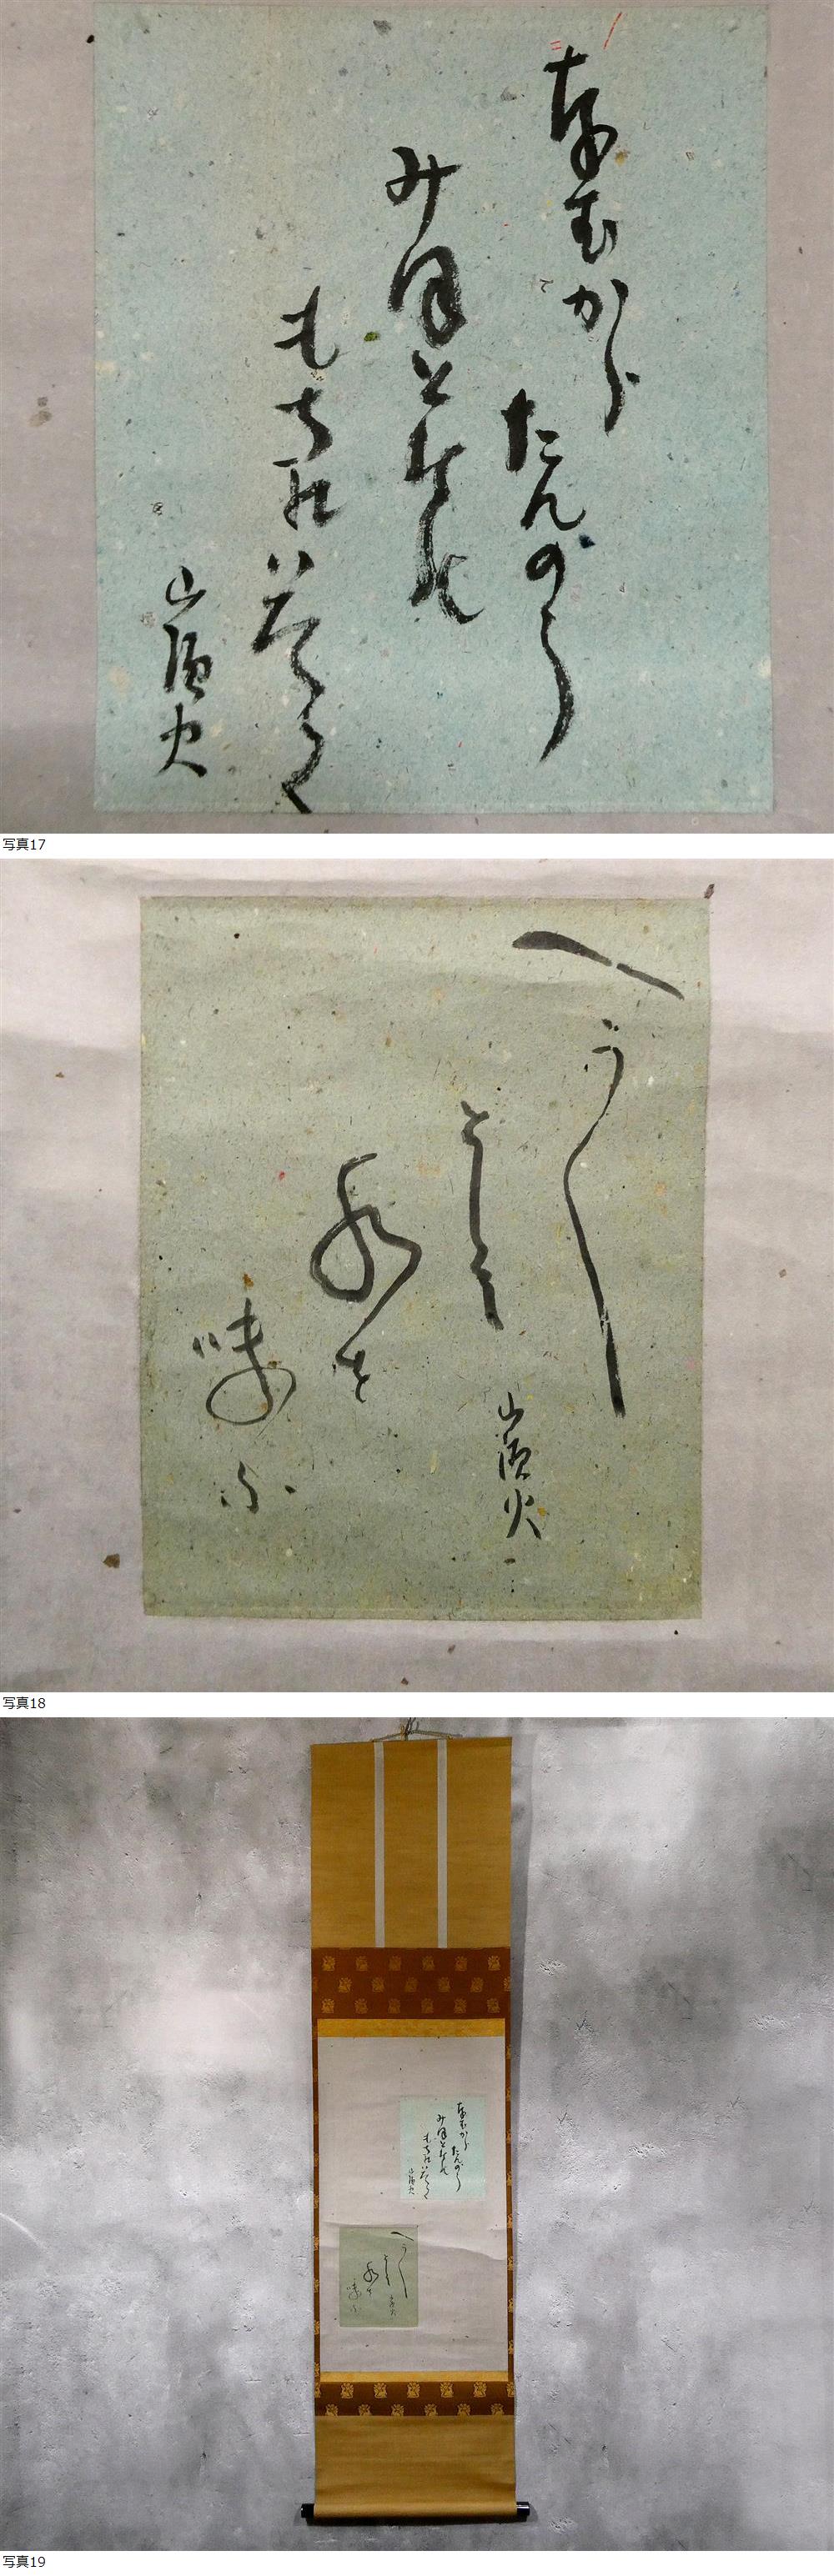 奈むから
たんのう
みほとけの
もちいたゞく
山頭火
写真17
へう〱
として
山頭火
水を
味ふ
写真18
写真19